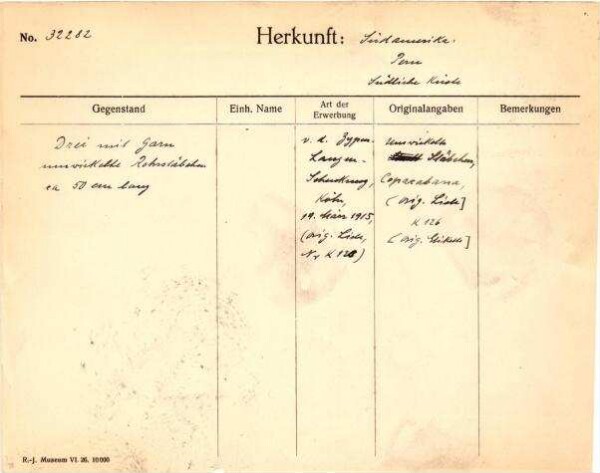 No. 32282
Herkunft: Südamerika.
Peru
Südliche Küste
Gegenstand
Einh. Name
Art der
Erwerbung
Originalangaben
Bemerkungen
Drei mit Garn
umwickelte Rohrstäbchen
ca 50 cm lang
v. d. Zypen-
Langen-
Schenkung,
Köln,
19. März 1915,
(orig. Liste,
Nr K 126)
Umwickelte
Stäbchen,
Copacabana,
(orig. Liste]
K 126
(orig. Etikett]
R.-J. Museum VI. 26. 10000